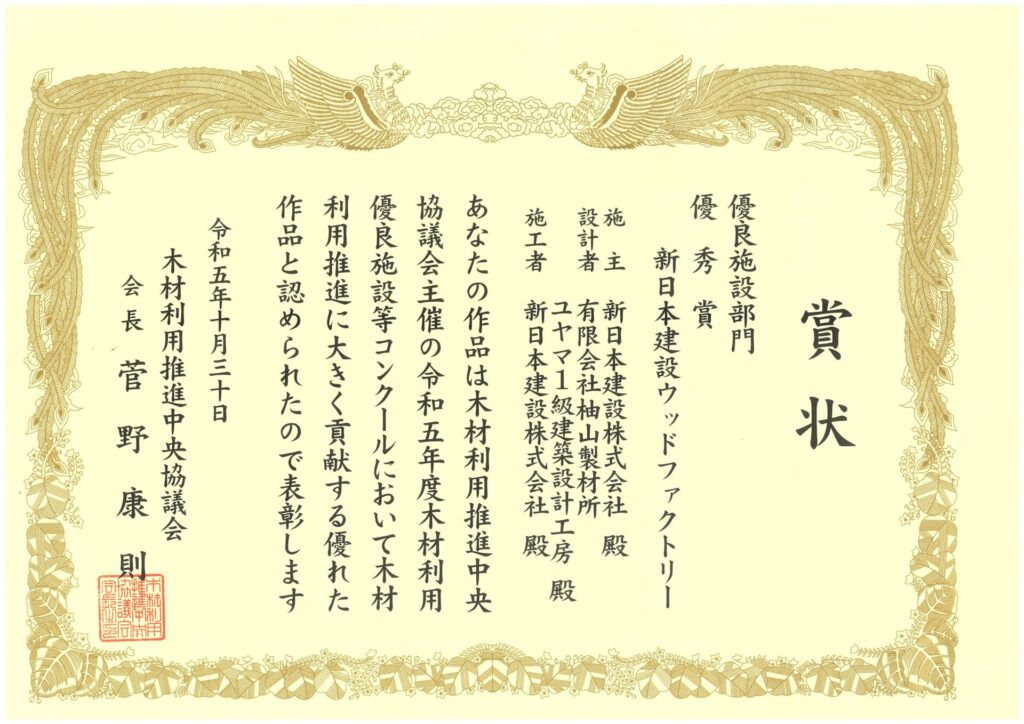 賞状
優良施設部門
優秀賞
新日本建設ウッドファクトリー
施主 新日本建設株式会社 殿
設計者 有限会社柚山製材所
ユヤマ1級建築設計工房 殿
施工者 新日本建設株式会社 殿
あなたの作品は木材利用推進中央
協議会主催の令和五年度木材利用
優良施設等コンクールにおいて木材
利用推進に大きく貢献する優れた
作品と認められたので表彰します
令和五年十月三十日
木材利用推進中央協議会
会長 菅野康則